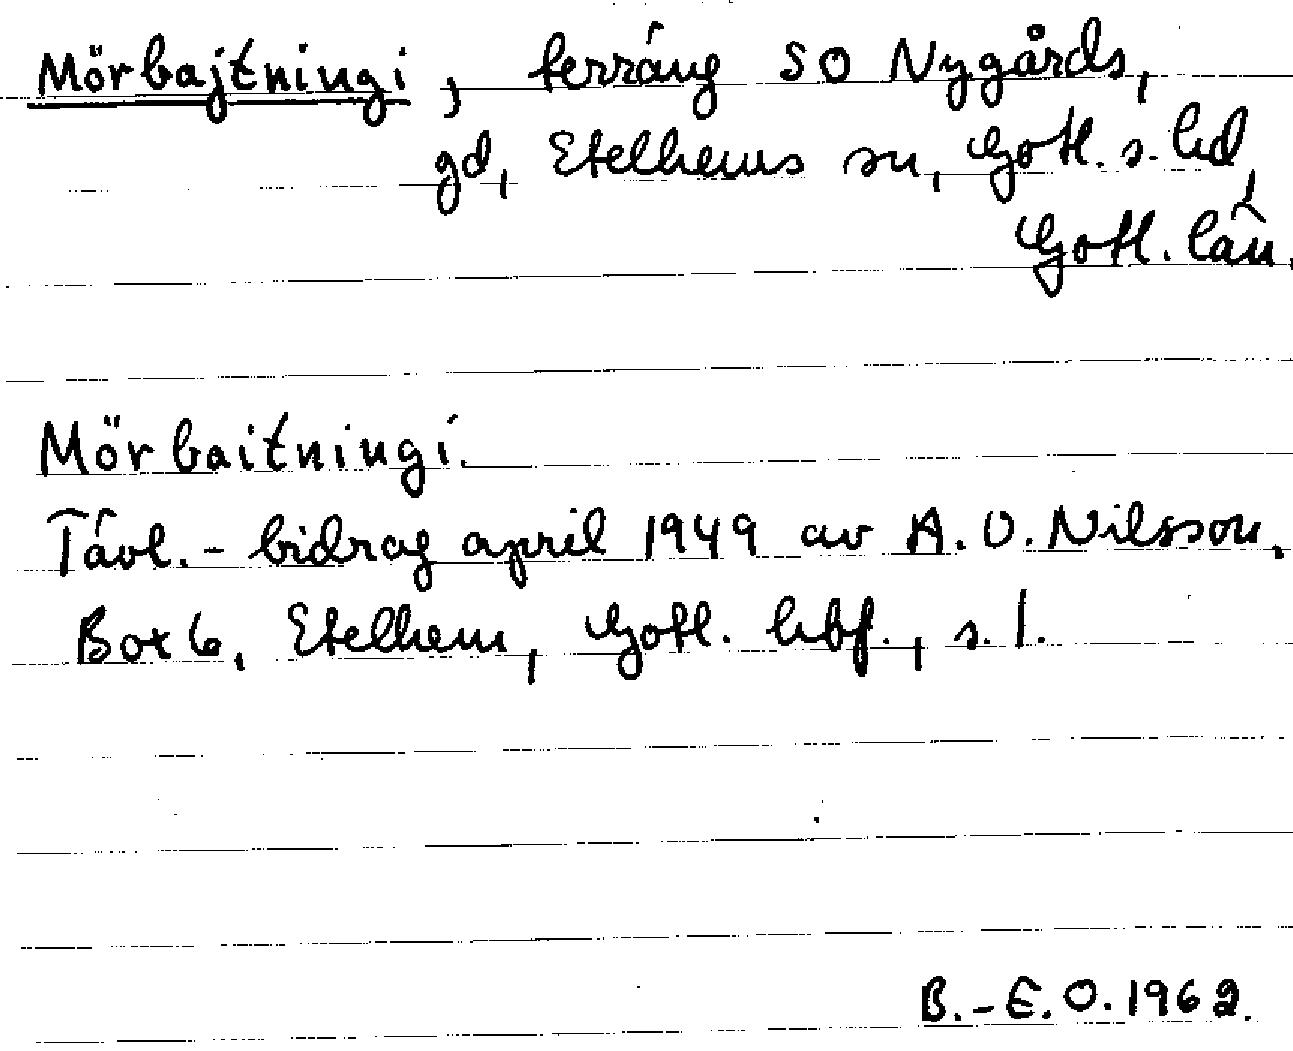 Mörbajtningi, terräng SO Nygårds,
gd, Etelhems sn, Gotl. s. hd,
Gotl. län.
Mörbaitningi.
Tävl.- bidrag april 1949 av A. O. Nilsson.
Box 6, Etelhem, Gotl. hbf., s. 1.
B.-E. O. 1962.